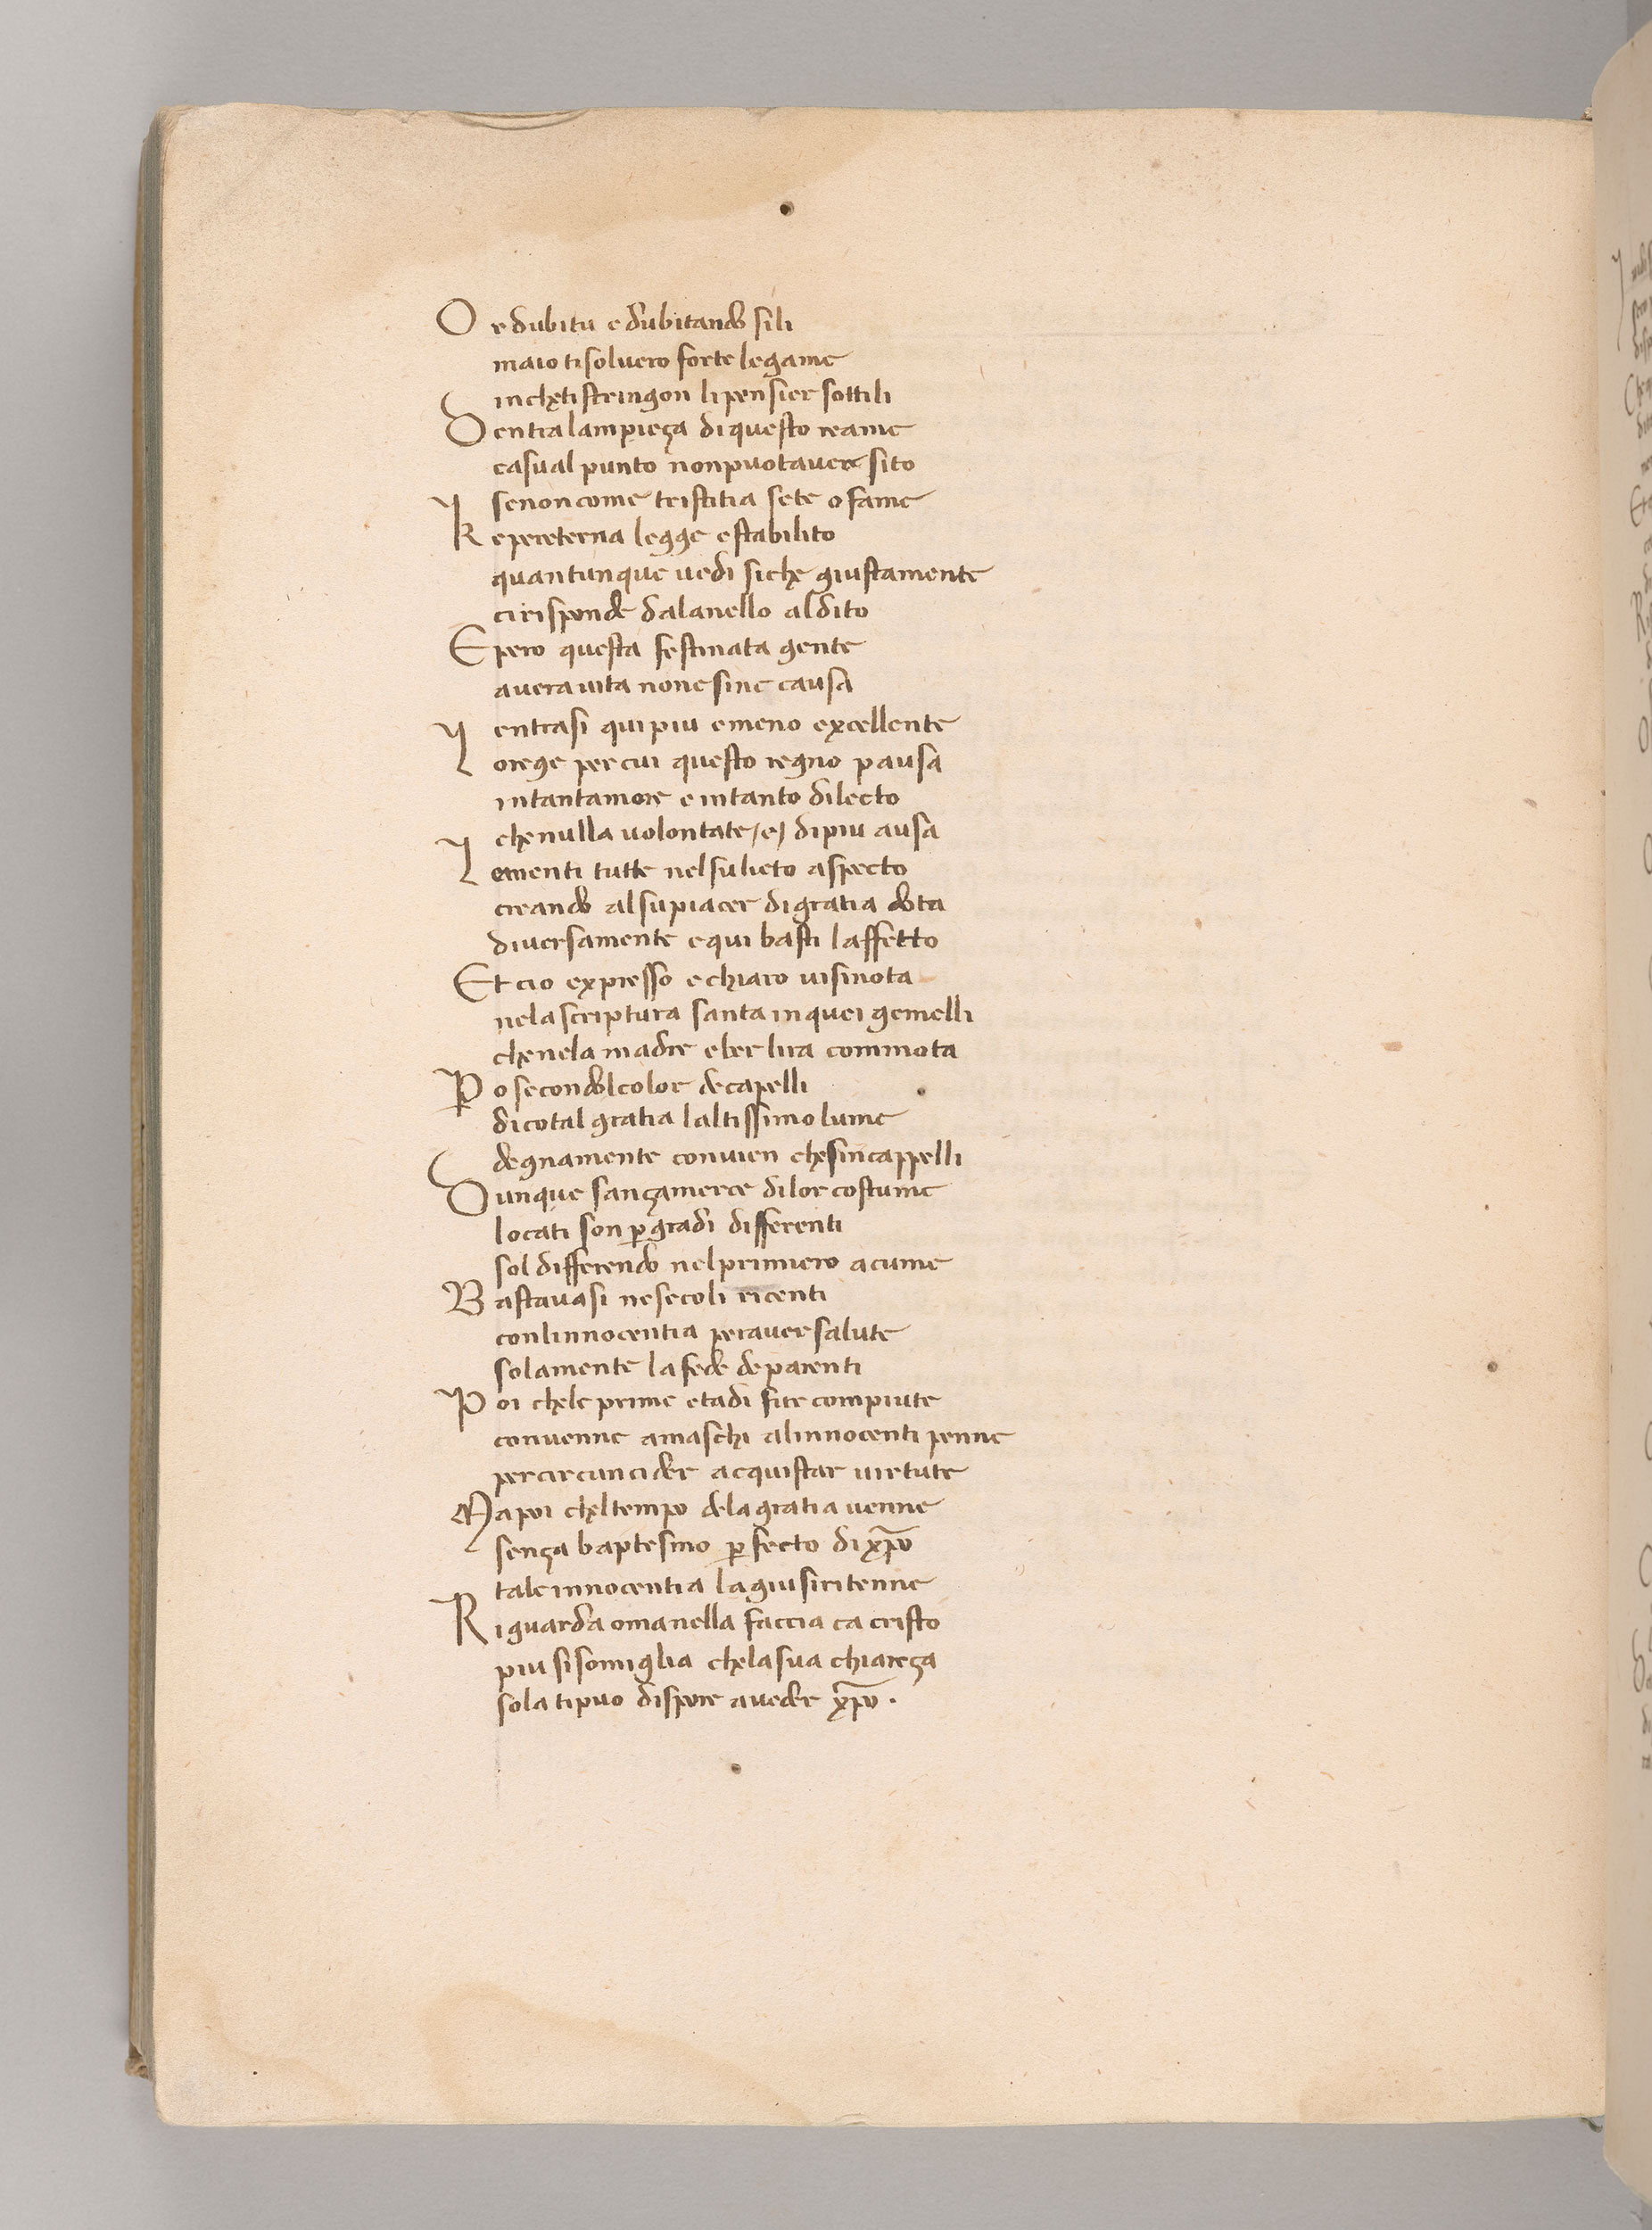 Or dubi tu e dubitando sili
maio ti solvero forte legame
in che ti stringon li pensier sottili
Dentra lampieça di questo reame
casual punto non puot avere sito
se non come tristitia sete o fame
Ke per eterna legge e stabilito
quantunque vedi si che giustamente
ci risponde dal anello al dito
E pero questa festinata gente
a vera vita non e sine causa
entrasi qui piu e meno excellente
Lo rege per cui questo regno pausa
in tant amore e in tanto dilecto
che nulla volontate /e/ di piu ausa
Le menti tutte nel su lieto aspecto
creando al su piacer di gratia dota
diversamente e qui basti laffetto
Et cio expresso e chiaro vi si nota
nela scriptura santa in quei gemelli
che nela madre eber lira commota
Po secondol color de capelli
di cotal gratia laltissimo lume
degnamente convien che sincappelli
Dunque sança merce di lor costume
locati son p gradi differenti
sol differendo nel primiero acume
Bastavasi ne secoli ricenti
con linnocentia per aver salute
solamente la fede de parenti
Poi che le prime etadi fur compiute
convenne a maschi a linnocenti penne
per circuncider acquistar virtute
Ma poi chel tempo dela gratia venne
sença baptesmo pfecto di xpo
tale innocentia la giu si ritenne
Riguarda oma nella faccia ca cristo
piu si somiglia che la sua chiareça
sola ti puo dispore a veder xpo .